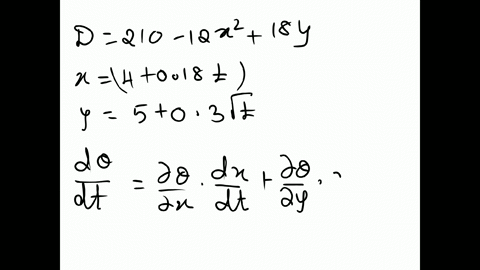 D = 210 - 12x² + 18y
x = (4 + 0.18 t)
y = 5 + 0.3√t
dθ/dt = ∂θ/∂x · dx/dt + ∂θ/∂y ·